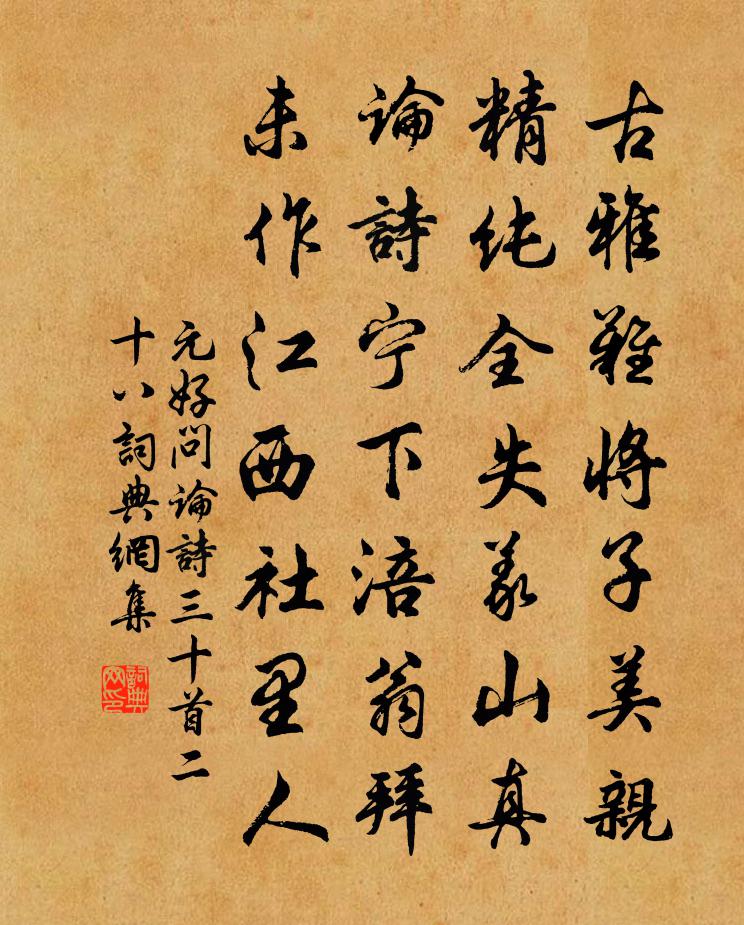 古雅難將子美親
精纯全失義山真
論詩宁下涪翁拜
未作江西社里人
元好问論詩三十首二
十八詞典網集
詞典
网印